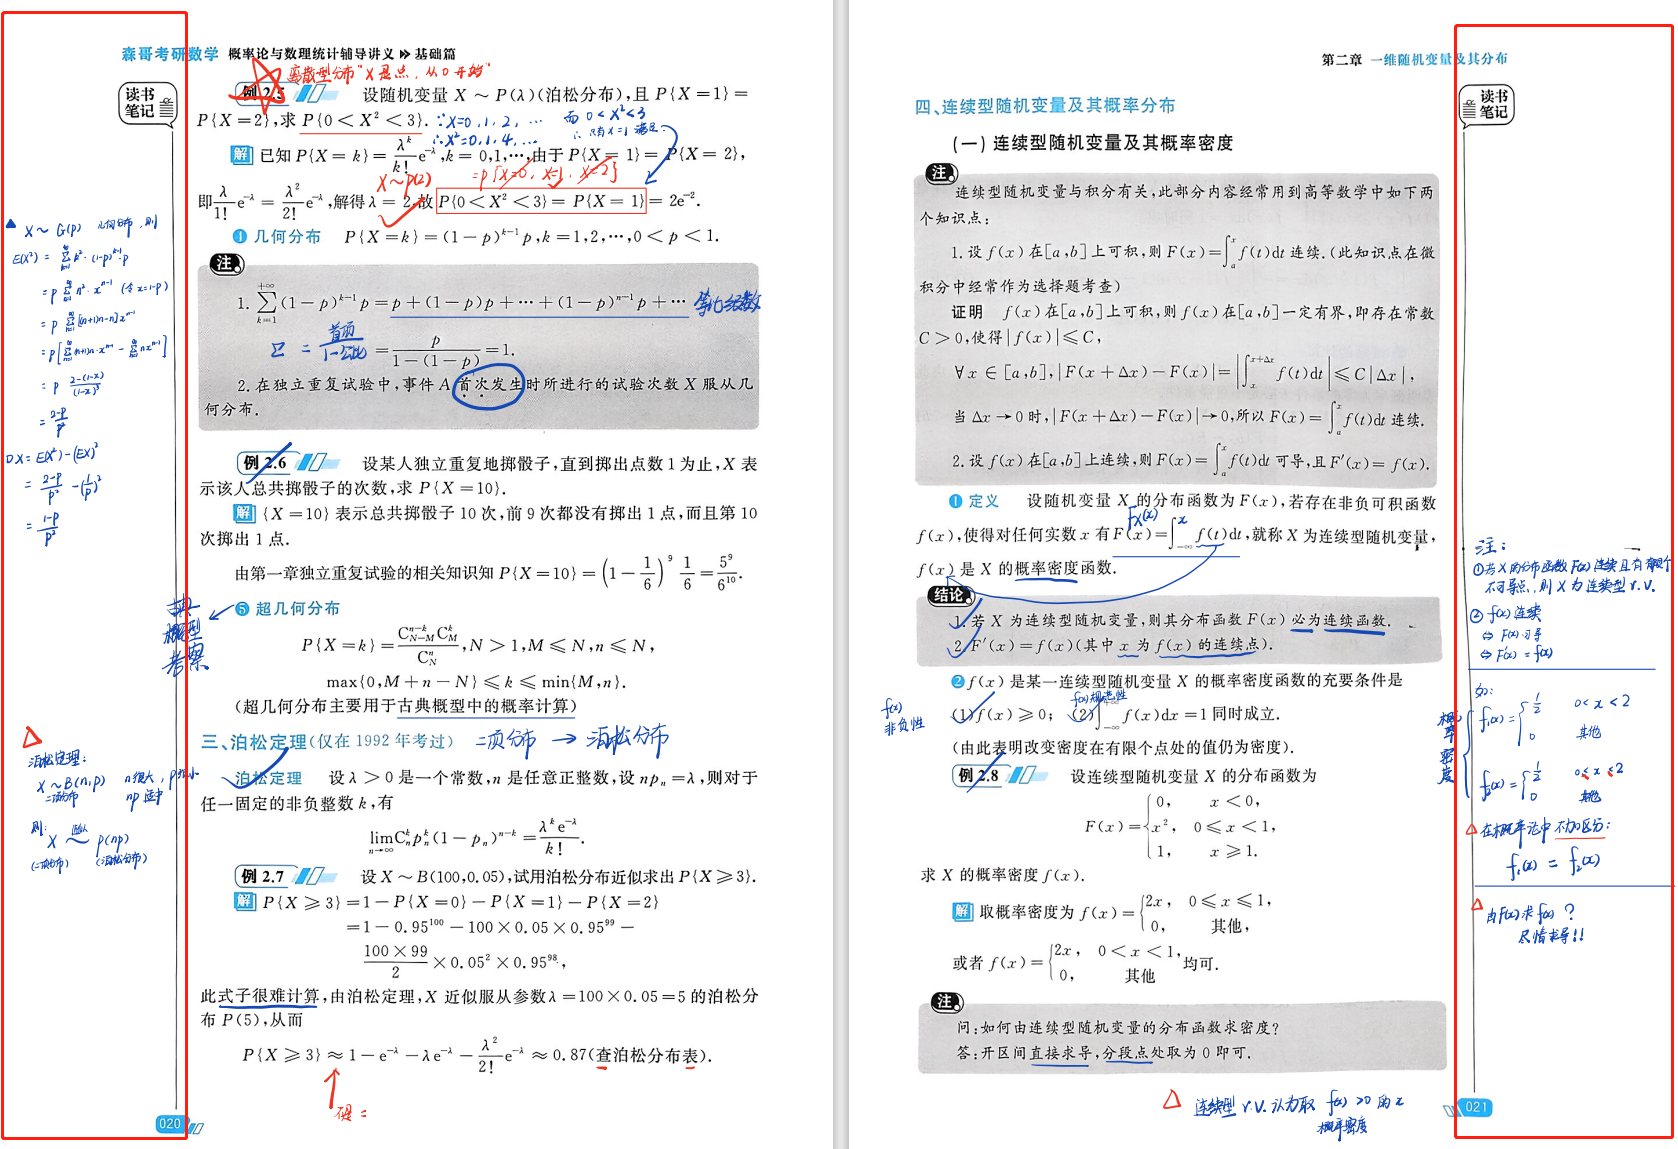 森哥考研数学 概率论与数理统计辅导讲义 基础篇
读书
笔记
离散型分布"X是点，从0开始"
例2.5 设随机变量 X ~ P(λ)(泊松分布),且 P{X=1}=
P{X=2},求 P{0<X²<3}. ∵X=0,1,2,… 而 0<X²<3
∴X²=0,1,4,… ∴只有X=1满足
解 已知 P{X=k}=λ^k/k! e^{-λ},k=0,1,…,由于 P{X=1}=P{X=2},
X~P(2) =P{X=0,X=1,X=2}
即 λ/1! e^{-λ}=λ²/2! e^{-λ},解得 λ=2,故 P{0<X²<3}=P{X=1}=2e^{-2}.
❹ 几何分布 P{X=k}=(1-p)^{k-1}p,k=1,2,…,0<p<1.
注
1. ∑_{k=1}^{+∞}(1-p)^{k-1}p=p+(1-p)p+…+(1-p)^{n-1}p+… 等比级数
Σ = 首项/1-公比 = p/(1-(1-p))=1.
2. 在独立重复试验中,事件 A 首次发生时所进行的试验次数 X 服从几
何分布.
例2.6 设某人独立重复地掷骰子,直到掷出点数1为止,X 表
示该人总共掷骰子的次数,求 P{X=10}.
解 {X=10}表示总共掷骰子10次,前9次都没有掷出1点,而且第10
次掷出1点.
由第一章独立重复试验的相关知识知 P{X=10}=(1-1/6)^9 1/6=5^9/6^{10}.
❺ 超几何分布
P{X=k}=C_{N-M}^{n-k}C_M^k/C_N^n,N>1,M≤N,n≤N,
max{0,M+n-N}≤k≤min{M,n}.
(超几何分布主要用于古典概型中的概率计算)
三、泊松定理(仅在1992年考过) 二项分布 → 泊松分布
泊松定理 设 λ>0 是一个常数,n 是任意正整数,设 np_n=λ,则对于
任一固定的非负整数 k,有
lim_{n→∞}C_n^k p_n^k(1-p_n)^{n-k}=λ^k e^{-λ}/k!.
例2.7 设 X~B(100,0.05),试用泊松分布近似求出 P{X≥3}.
解 P{X≥3}=1-P{X=0}-P{X=1}-P{X=2}
=1-0.95^{100}-100×0.05×0.95^{99}-
100×99/2×0.05²×0.95^{98},
此式子很难计算,由泊松定理,X 近似服从参数 λ=100×0.05=5 的泊松分
布 P(5),从而
P{X≥3}≈1-e^{-λ}-λe^{-λ}-λ²/2! e^{-λ}≈0.87(查泊松分布表).
020
▲ X~G(p) 几何分布,则
E(X²)=∑_{k=1}^∞ k²·(1-p)^{k-1}·p
=p ∑_{n=1}^∞ n²·x^{n-1} (令x=1-p)
=p ∑_{n=1}^∞[(n+1)n-n]x^{n-1}
=p[∑_{n=1}^∞(n+1)n·x^{n-1}-∑_{n=1}^∞nx^{n-1}]
=p 2-(1-x)/(1-x)³
=2-p/p²
DX=E(X²)-(EX)²
=2-p/p²-(1/p)²
=1-p/p²
古典
概型
考察
△
泊松定理:
X~B(n,p) n很大,p很小
二项分布 np适中
则:
X 近似~ P(np)
(二项分布) (泊松分布)
第二章 一维随机变量及其分布
读书
笔记
四、连续型随机变量及其概率分布
(一) 连续型随机变量及其概率密度
注
连续型随机变量与积分有关,此部分内容经常用到高等数学中如下两
个知识点:
1. 设 f(x)在[a,b]上可积,则 F(x)=∫_a^x f(t)dt 连续.(此知识点在微
积分中经常作为选择题考查)
证明 f(x)在[a,b]上可积,则 f(x)在[a,b]一定有界,即存在常数
C>0,使得|f(x)|≤C,
∀x∈[a,b],|F(x+Δx)-F(x)|=|∫_x^{x+Δx} f(t)dt|≤C|Δx|,
当 Δx→0 时,|F(x+Δx)-F(x)|→0,所以 F(x)=∫_a^x f(t)dt 连续.
2. 设 f(x)在[a,b]上连续,则 F(x)=∫_a^x f(t)dt 可导,且 F′(x)=f(x).
❶ 定义 设随机变量 X 的分布函数为 F(x),若存在非负可积函数
F_X(x)
f(x),使得对任何实数 x 有 F(x)=∫_{-∞}^x f(t)dt,就称 X 为连续型随机变量,
f(x)是 X 的概率密度函数.
结论
1. 若 X 为连续型随机变量,则其分布函数 F(x)必为连续函数.
2. F′(x)=f(x)(其中 x 为 f(x)的连续点).
❷ f(x)是某一连续型随机变量 X 的概率密度函数的充要条件是
f(x)
非负性
f(x)规范性
(1)f(x)≥0; (2)∫_{-∞}^{+∞} f(x)dx=1 同时成立.
(由此表明改变密度在有限个点处的值仍为密度).
例2.8 设连续型随机变量 X 的分布函数为
F(x)={0, x<0,
x², 0≤x<1,
1, x≥1.
求 X 的概率密度 f(x).
解 取概率密度为 f(x)={2x, 0≤x≤1,
0, 其他,
或者 f(x)={2x, 0<x<1,
0, 其他 均可.
注
问:如何由连续型随机变量的分布函数求密度?
答:开区间直接求导,分段点处取为0即可.
△ 连续型 r.v. 认为取 f(x)>0 的x
概率密度
021
注:
①若X的分布函数F(x)连续且有有限个
不可导点,则X为连续型r.v.
② f(x)连续
⇔ F(x)可导
⇔ F′(x)=f(x)
如:
概率密度
f₁(x)={1/2 0<x<2
0 其他
f₂(x)={1/2 0≤x≤2
0 其他
△ 在概率论中不加区分:
f₁(x)=f₂(x)
△ 由F(x)求f(x)?
尽情求导!!